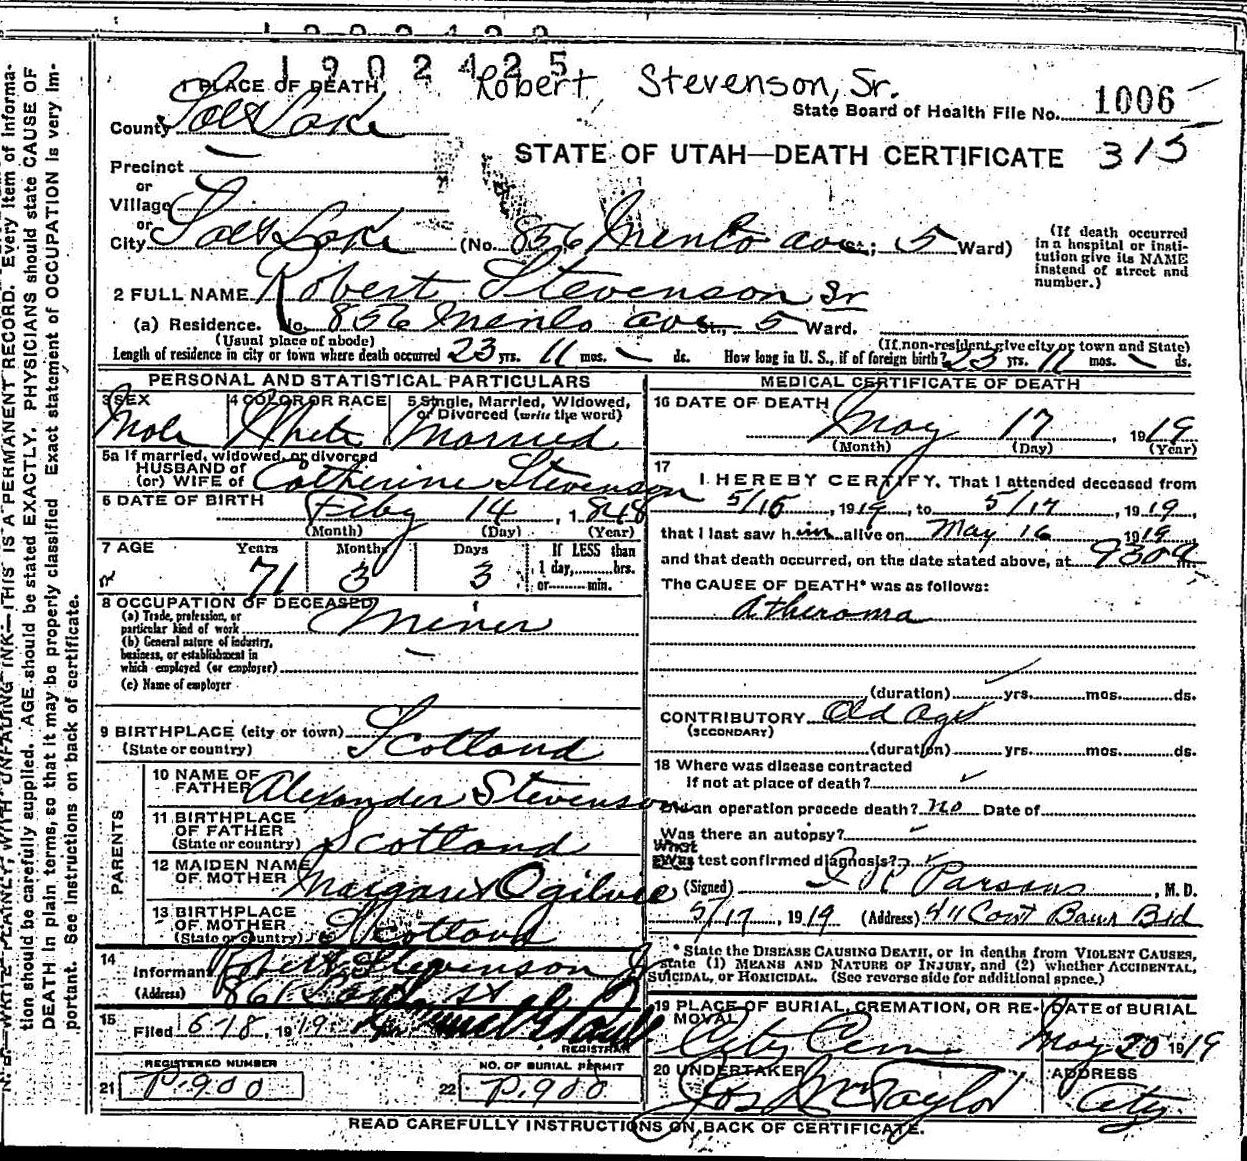 1902425
Robert Stevenson, Sr.
State Board of Health File No. 1006
315
STATE OF UTAH—DEATH CERTIFICATE
1 PLACE OF DEATH
County Salt Lake
Precinct
or
Village
or
City Salt Lake (No. 856 Menlo ave; 5 Ward)
(If death occurred in a hospital or institution give its NAME instead of street and number.)
2 FULL NAME Robert Stevenson Sr
(a) Residence. No. 856 Menlo ave St., 5 Ward.
(Usual place of abode) (If non-resident give city or town and State)
Length of residence in city or town where death occurred 23 yrs. 11 mos. ds. How long in U. S., if of foreign birth? 23 yrs. 11 mos. ds.
PERSONAL AND STATISTICAL PARTICULARS
3 SEX Male
4 COLOR OR RACE White
5 Single, Married, Widowed, or Divorced (write the word) Married
5a If married, widowed, or divorced
HUSBAND of
(or) WIFE of Catherine Stevenson
6 DATE OF BIRTH Feby 14, 1848
(Month) (Day) (Year)
7 AGE Years Months Days If LESS than
71 3 3 1 day, hrs.
or min.
8 OCCUPATION OF DECEASED
(a) Trade, profession, or
particular kind of work Miner
(b) General nature of industry,
business, or establishment in
which employed (or employer)
(c) Name of employer
9 BIRTHPLACE (city or town)
(State or country) Scotland
PARENTS
10 NAME OF
FATHER Alexander Stevenson
11 BIRTHPLACE
OF FATHER
(State or country) Scotland
12 MAIDEN NAME
OF MOTHER Margaret Ogilvie
13 BIRTHPLACE
OF MOTHER
(State or country) Scotland
14
Informant Robert Stevenson Jr
(Address) 861
15
Filed 5-18, 1919
REGISTRAR
REGISTERED NUMBER
21 P.900
NO. OF BURIAL PERMIT
22 P.900
MEDICAL CERTIFICATE OF DEATH
16 DATE OF DEATH
May 17, 1919
(Month) (Day) (Year)
17
I HEREBY CERTIFY, That I attended deceased from
5/15, 1919, to 5/17, 1919,
that I last saw him alive on May 16 1919
and that death occurred, on the date stated above, at 930a m.
The CAUSE OF DEATH* was as follows:
Atheroma
(duration) yrs. mos. ds.
CONTRIBUTORY Old Age
(SECONDARY)
(duration) yrs. mos. ds.
18 Where was disease contracted
If not at place of death?
Did an operation precede death? no Date of
Was there an autopsy?
What test confirmed diagnosis?
(Signed) Parsons, M. D.
5/17, 1919 (Address) 411
* State the DISEASE CAUSING DEATH, or in deaths from VIOLENT CAUSES,
state (1) MEANS AND NATURE OF INJURY, and (2) whether ACCIDENTAL,
SUICIDAL, or HOMICIDAL. (See reverse side for additional space.)
19 PLACE OF BURIAL, CREMATION, OR RE-
MOVAL City Cem
DATE of BURIAL
May 20 1919
20 UNDERTAKER
Jos Wm Taylor
ADDRESS
City
READ CAREFULLY INSTRUCTIONS ON BACK OF CERTIFICATE.
N. B.—WRITE PLAINLY, WITH UNFADING INK—THIS IS A PERMANENT RECORD. Every item of informa-
tion should be carefully supplied. AGE should be stated EXACTLY. PHYSICIANS should state CAUSE OF
DEATH in plain terms, so that it may be properly classified. Exact statement of OCCUPATION is very im-
portant. See instructions on back of certificate.